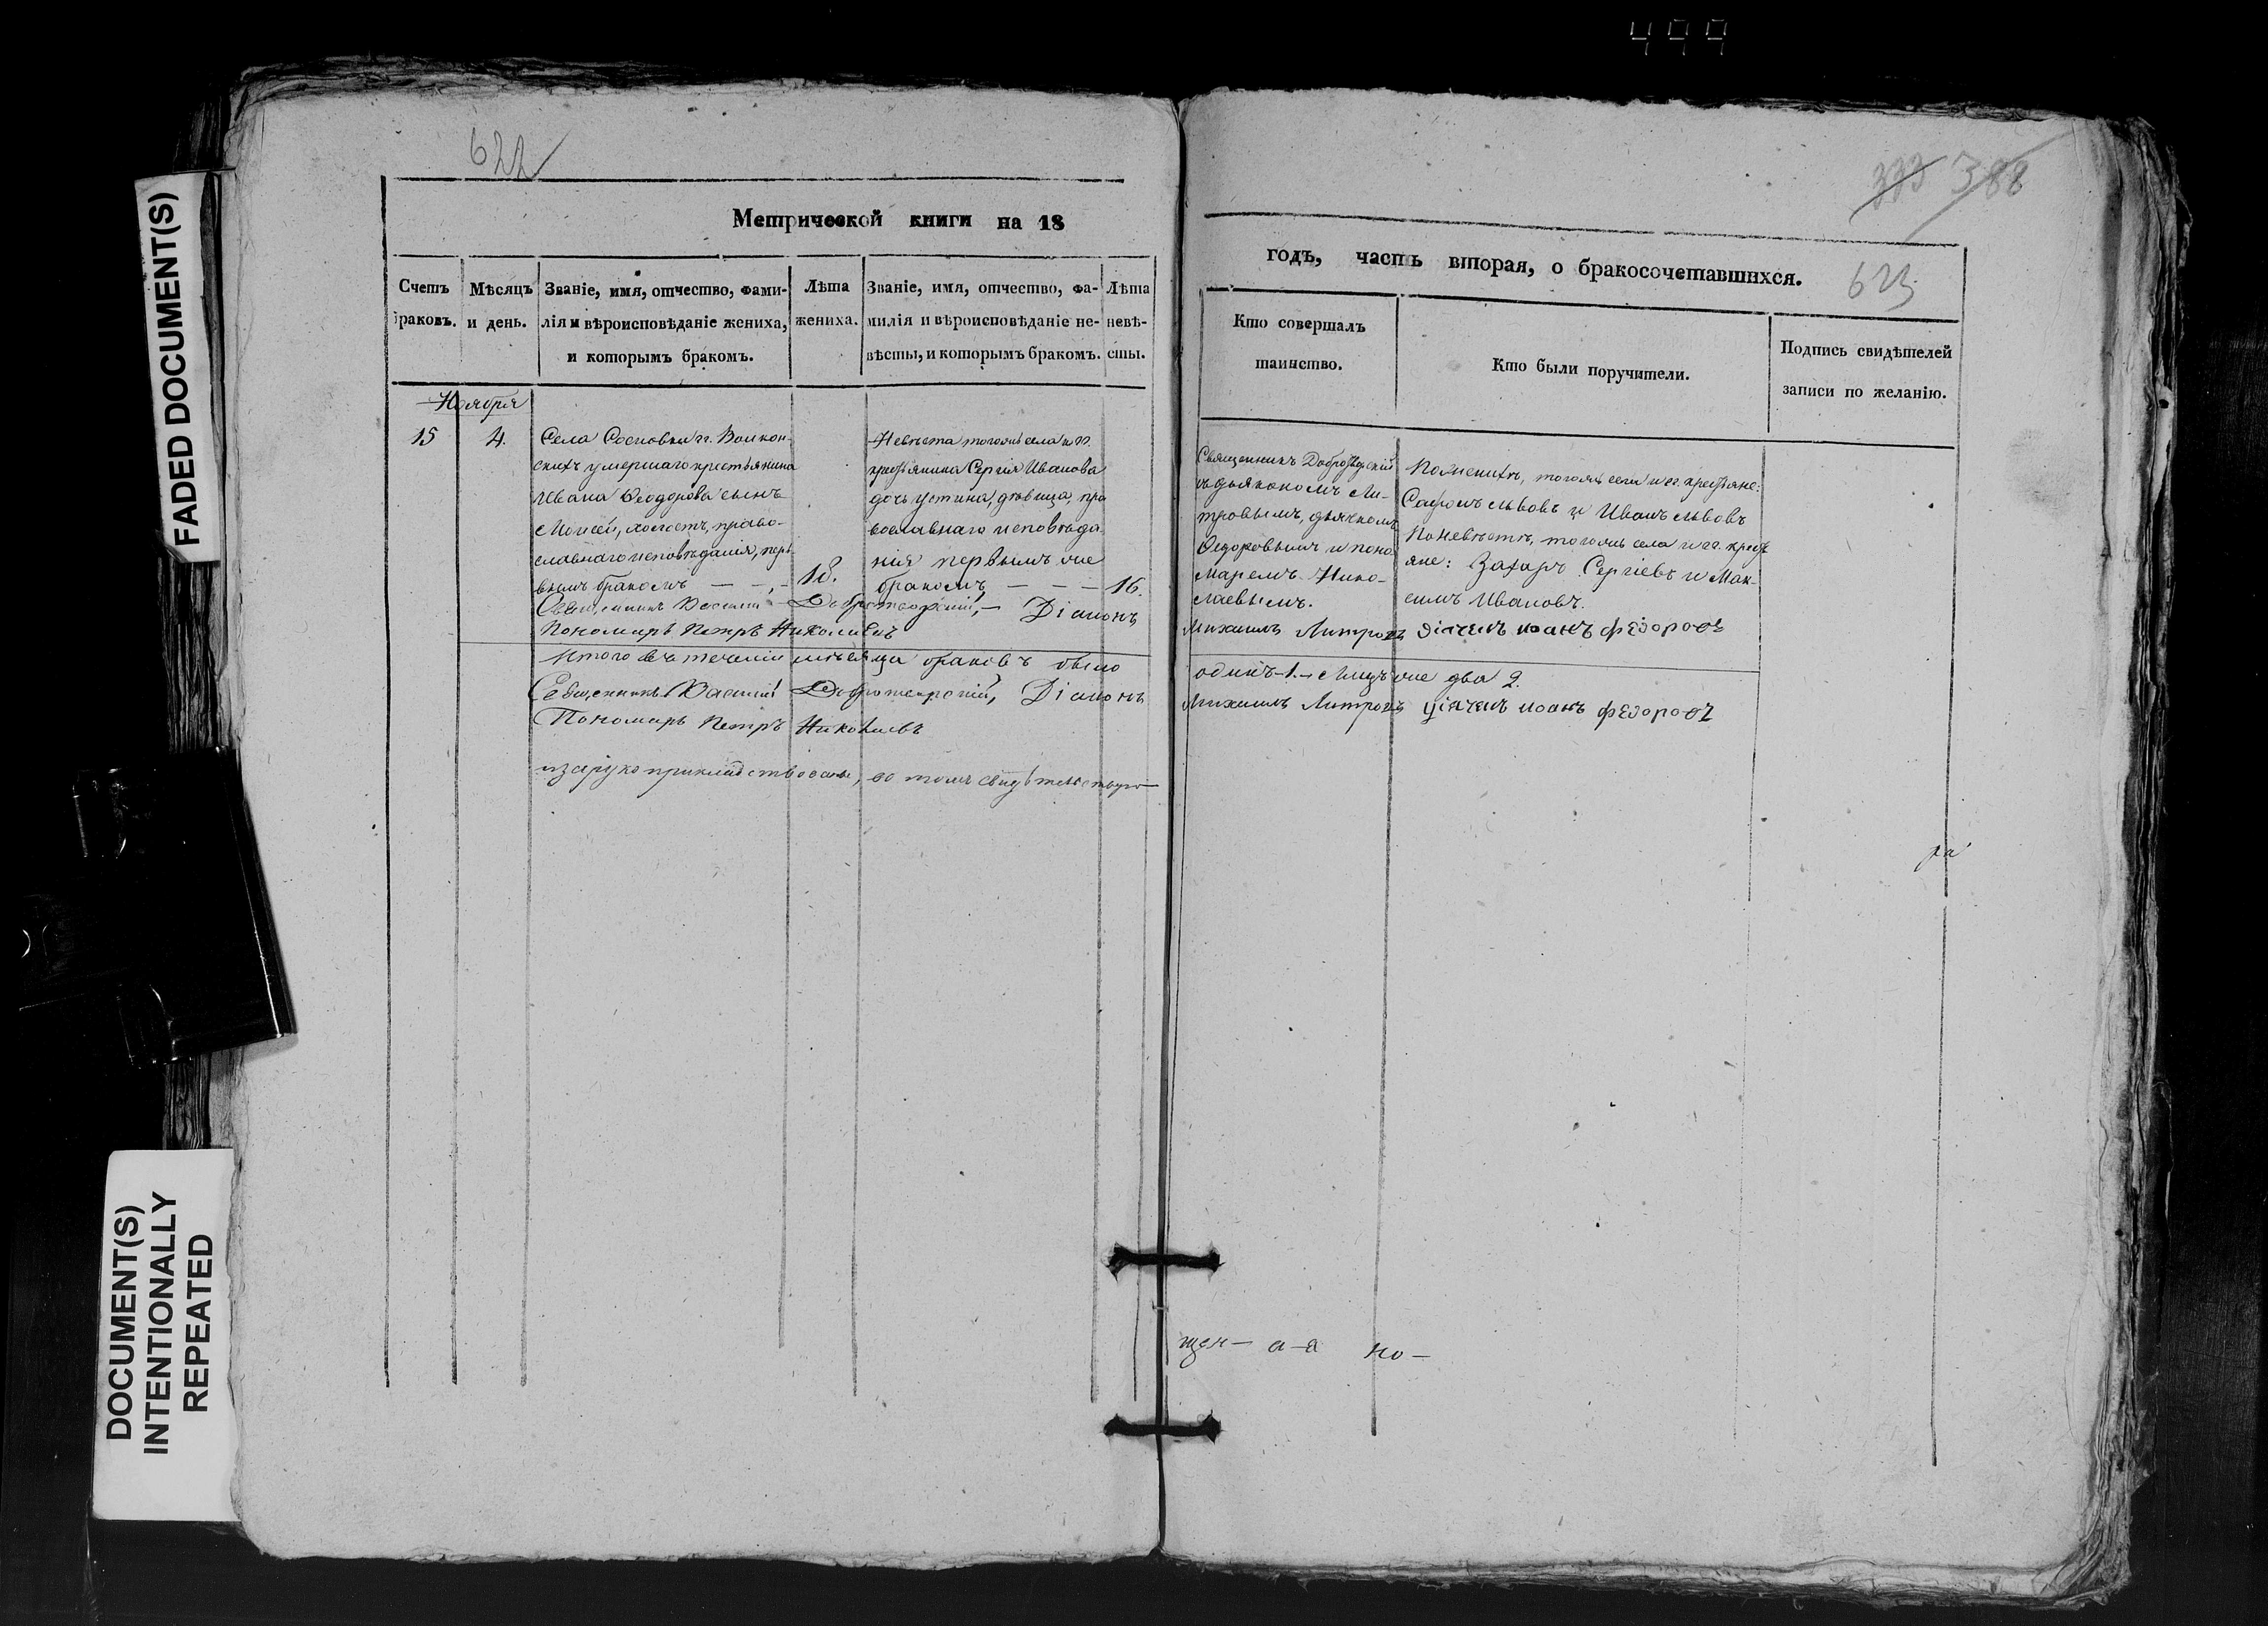 499
FADED DOCUMENT(S)
DOCUMENT(S)
INTENTIONALLY
REPEATED
622
Метрической книги на 18
Счетъ
браковъ.
Мѣсяцъ
и день.
Званіе, имя, отчество, фами-
лія и вѣроисповѣданіе жениха,
и которымъ бракомъ.
Лѣта
жениха.
Званіе, имя, отчество, фа-
милія и вѣроисповѣданіе не-
вѣсты, и которымъ бракомъ.
Лѣта
невѣ-
сты.
Ноября
15
4.
Села Сосновки гг. Волкон-
скихъ умершаго крестьянина
Ивана Ѳеодорова сынъ
Моисей, холостъ, право-
славнаго исповѣданія, пер-
вымъ бракомъ
18.
Невѣста тогожъ села и гг.
крестьянина Сергія Иванова
дочь Устина, дѣвица, пра
вославнаго исповѣда
нія первымъ же
бракомъ
16.
Священникъ Василій Добротворскій, Діаконъ
Пономарь Петръ Николаевъ
Итого въ теченіи мѣсяца браковъ было
Священникъ Василій Добротворскій, Діаконъ
Пономарь Петръ Николаевъ
рукоприкладствовали, въ томъ свидѣтельствую
388
годъ, часть вторая, о бракосочетавшихся.
623
Кто совершалъ
таинство.
Кто были поручители.
Подпись свидѣтелей
записи по желанію.
Священникъ Доброворскій
съ дьякономъ Ми-
тровымъ, дьячкомъ
Ѳедоровымъ и поно
маремъ Нико-
лаевымъ.
По женихѣ, тогожъ села и гг. крестьяне:
Сафонъ Львовъ и Иванъ Львовъ
По невѣстѣ, тогожъ села и гг. кресть
яне: Захаръ Сергіевъ и Мак-
симъ Ивановъ.
Михаилъ Митровъ дьячекъ иоанъ федоровъ
одинъ-1.- Лицъ же два 2.
Михаилъ Митровъ дьячекъ иоанъ федоровъ
ра
щен- а-а но-